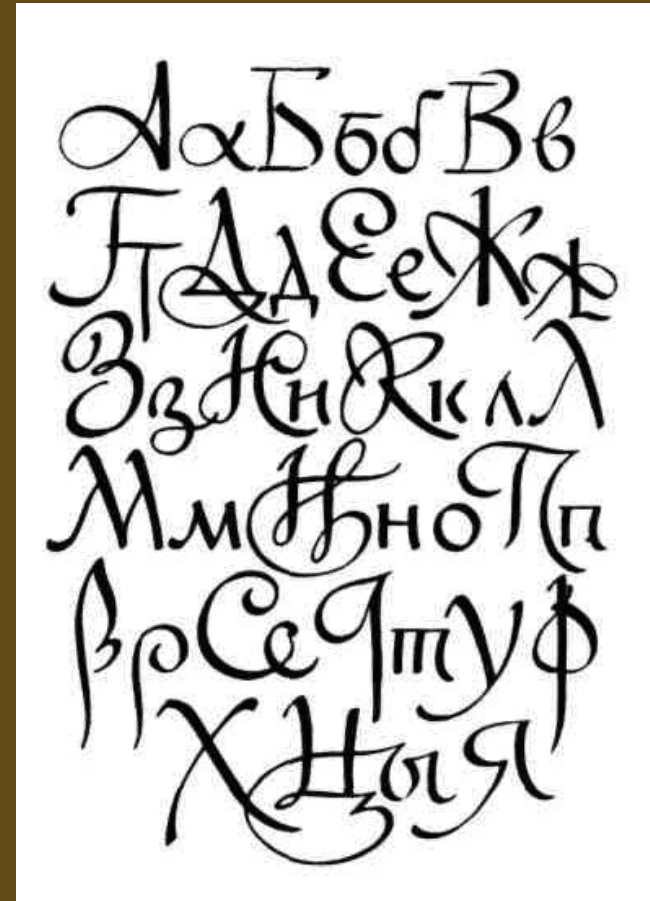 АаБбბВв
ГгДдЕеЖж
ЗзИиКклЛ
МмНноПп
РрСсТтуф
ХЦыЯ